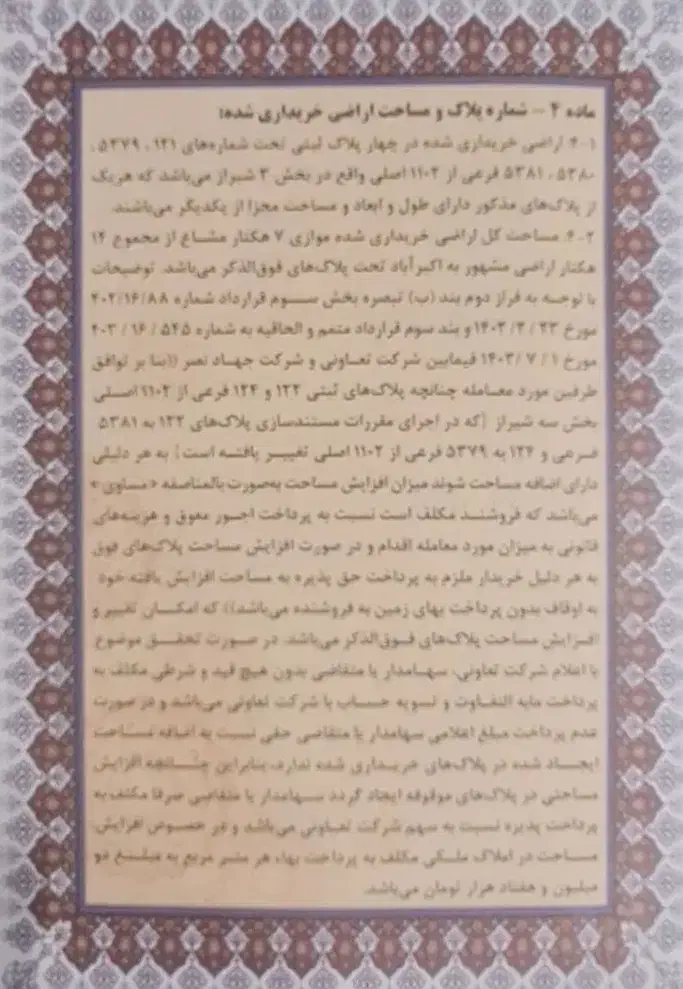 ماده ۴ – شماره پلاک و مساحت اراضی خریداری شده:
۴-۱ اراضی خریداری شده در چهار پلاک ثبتی تحت شماره‌های ۱۲۱ ، ۵۳۷۹ ،
۵۳۸۰ ، ۵۳۸۱ فرعی از ۱۱۰۲ اصلی واقع در بخش ۳ شیراز می‌باشد که هریک
از پلاک‌های مذکور دارای طول و ابعاد و مساحت مجزا از یکدیگر می‌باشند.
۴-۲ مساحت کل اراضی خریداری شده موازی ۷ هکتار مشاع از مجموع ۱۴
هکتار اراضی مشهور به اکبرآباد تحت پلاک‌های فوق‌الذکر می‌باشد. توضیحات
با توجه به فراز دوم بند (ب) تبصره بخش سوم قرارداد شماره ۲۰۲/۱۶/۸۸
مورخ ۲۳ / ۲ / ۱۴۰۲ و بند سوم قرارداد متمم و الحاقیه به شماره ۵۴۵ / ۱۶ / ۲۰۳
مورخ ۱ / ۷ / ۱۴۰۳ فیمابین شرکت تعاونی و شرکت جهاد نصر ((بنا بر توافق
طرفین مورد معامله چنانچه پلاک‌های ثبتی ۱۲۲ و ۱۲۴ فرعی از ۱۱۰۲ اصلی
بخش سه شیراز [که در اجرای مقررات مستندسازی پلاک‌های ۱۲۲ به ۵۳۸۱
فرعی و ۱۲۴ به ۵۳۷۹ فرعی از ۱۱۰۲ اصلی تغییر یافته است] به هر دلیلی
دارای اضافه مساحت شوند میزان افزایش مساحت به‌صورت بالمناصفه «مساوی»
می‌باشد که فروشنده مکلف است نسبت به پرداخت اجور معوق و هزینه‌های
قانونی به میزان مورد معامله اقدام و در صورت افزایش مساحت پلاک‌های فوق
به هر دلیل خریدار ملزم به پرداخت حق پذیره به مساحت افزایش یافته خود
به اوقاف بدون پرداخت بهای زمین به فروشنده می‌باشد)) که امکان تغییر و
افزایش مساحت پلاک‌های فوق‌الذکر می‌باشد. در صورت تحقق موضوع
با اعلام شرکت تعاونی، سهامدار یا متقاضی بدون هیچ قید و شرطی مکلف به
پرداخت مابه التفاوت و تسویه حساب با شرکت تعاونی می‌باشد و در صورت
عدم پرداخت مبلغ اعلامی سهامدار یا متقاضی حقی نسبت به اضافه مساحت
ایجاد شده در پلاک‌های خریداری شده ندارد، بنابراین چنانچه افزایش
مساحتی در پلاک‌های موقوفه ایجاد گردد سهامدار یا متقاضی صرفا مکلف به
پرداخت پذیره نسبت به سهم شرکت تعاونی می‌باشد و در خصوص افزایش
مساحت در املاک ملکی مکلف به پرداخت بهاء هر متر مربع به مبلغ دو
میلیون و هفتاد هزار تومان می‌باشد.